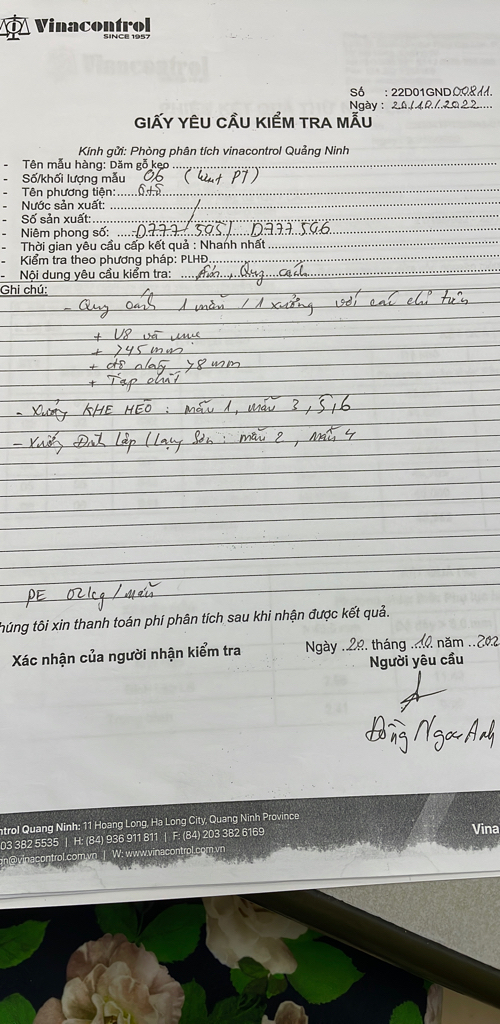 Vinacontrol
SINCE 1957
Số : 22D01GND00811.
Ngày : 20/10/2022
GIẤY YÊU CẦU KIỂM TRA MẪU
Kính gửi: Phòng phân tích vinacontrol Quảng Ninh
- Tên mẫu hàng: Dăm gỗ keo
- Số/khối lượng mẫu 06 ( PT)
- Tên phương tiện: 6+5
- Nước sản xuất: /
- Số sản xuất:
- Niêm phong số: D777 505/ D777 506
- Thời gian yêu cầu cấp kết quả : Nhanh nhất
- Kiểm tra theo phương pháp: PLHĐ
- Nội dung yêu cầu kiểm tra: Ẩm, Quy cách
Ghi chú:
- Quy cách 1 mẫu / 1 xưởng với các chỉ tiêu
+ Vỏ và mục
+ >45 mm
+ độ dày >8 mm
+ Tạp chất
- Xưởng KHE HÈO : mẫu 1, mẫu 3, 5, 6
- Xưởng Đình Lập (Lạng Sơn : mẫu 2, mẫu 4
PE 02kg / mẫu
húng tôi xin thanh toán phí phân tích sau khi nhận được kết quả.
Ngày 20 tháng 10 năm 202
Xác nhận của người nhận kiểm tra
Người yêu cầu
Đồng Ngọc Anh
ntrol Quang Ninh: 11 Hoang Long, Ha Long City, Quang Ninh Province
03 382 5535 | H: (84) 936 911 811 | F: (84) 203 382 6169
gn@vinacontrol.com.vn | W: www.vinacontrol.com.vn
Vina